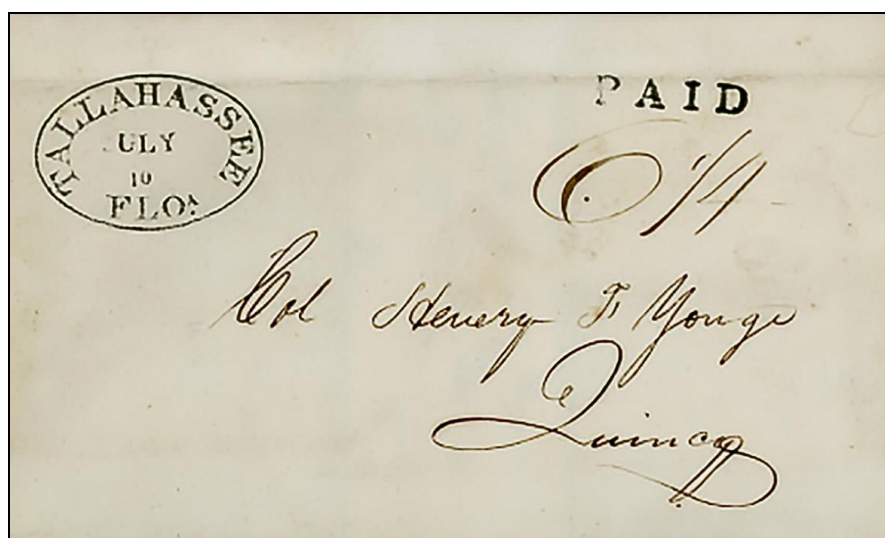 TALLAHASSEE
JULY
10
FLOA
PAID
6 1/4
Col Henery F Yonge
Quincy